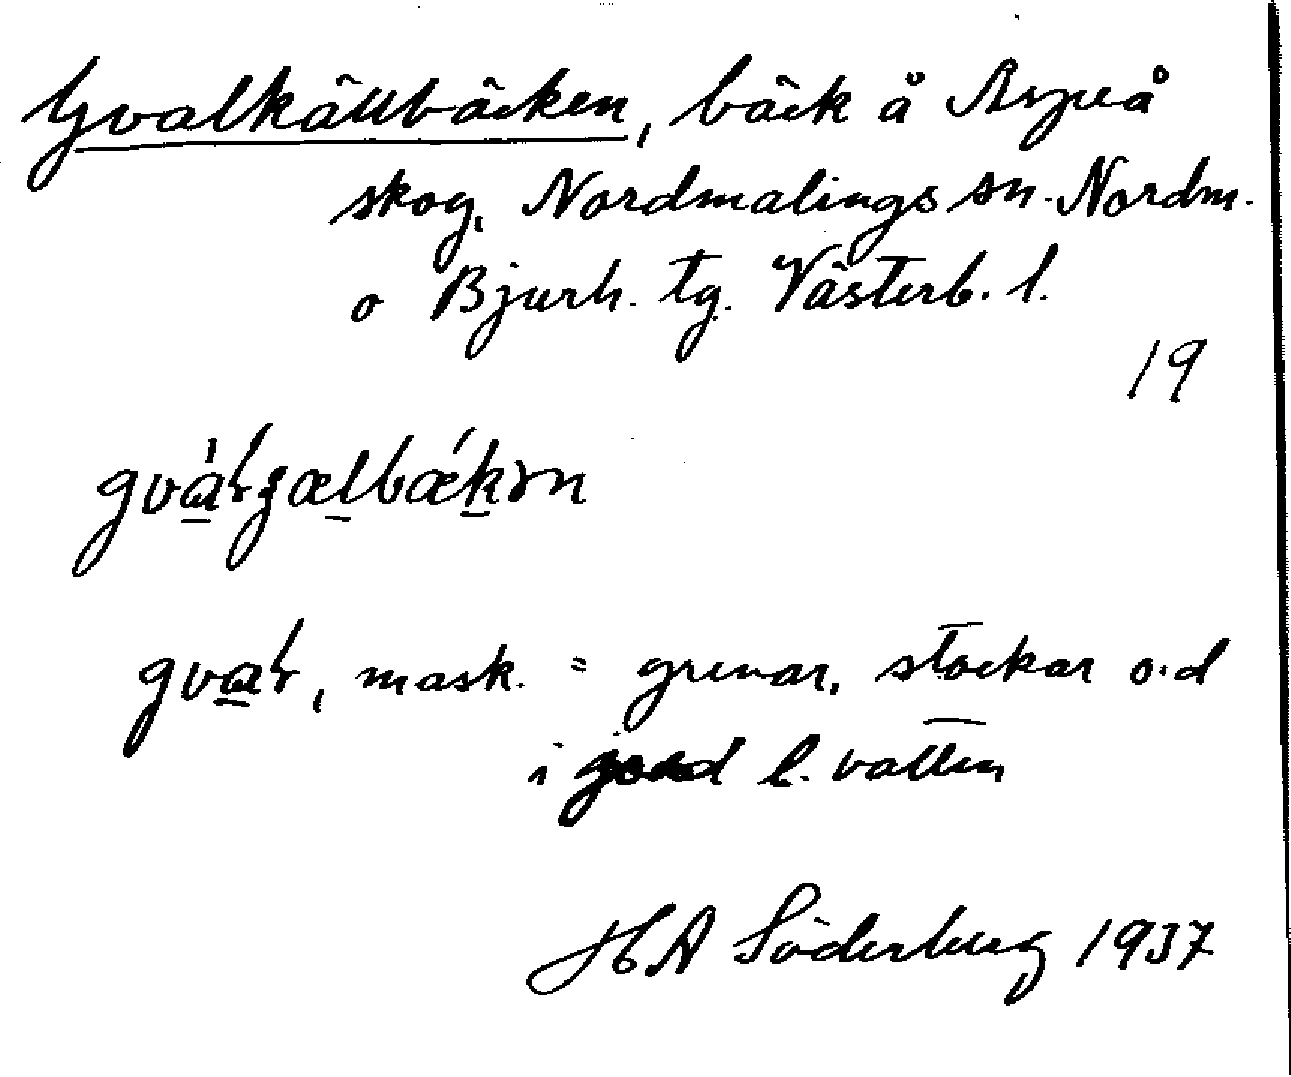 Gvalkällbäcken, bäck å Aspeå
skog, Nordmalings sn. Nordm.
o Bjurh. tg. Västerb. l.
19
, mask. = grenar, stockar o.d
i jord l. vatten
HA Söderberg 1937